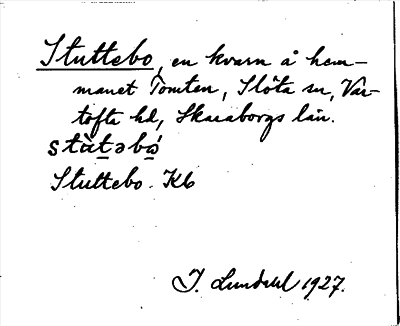 Stuttebo, en kvarn å hem-
manet Tomten, Slöta sn, Var-
tofta hd, Skaraborgs län.
stùt̲əbó̲
Stuttebo. Kb
I. Lundahl 1927.